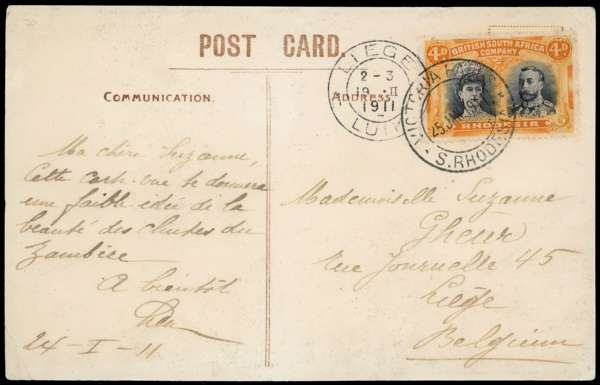 POST CARD.
COMMUNICATION.
ADDRESS
LIEGE
2-3
19 · II
1911
LUIK
4D
BRITISH SOUTH AFRICA
COMPANY
4D
RHODESIA
VICTORIA
25
S. RHODESIA
Ma chère Suzanne,
Cette carte-vue te donnera
une faible idée de la
beauté des chutes du
Zambèze
A bientôt
24-I-11
Mademoiselle Suzanne
Gheur
rue Journelle 45
Liège
Belgium